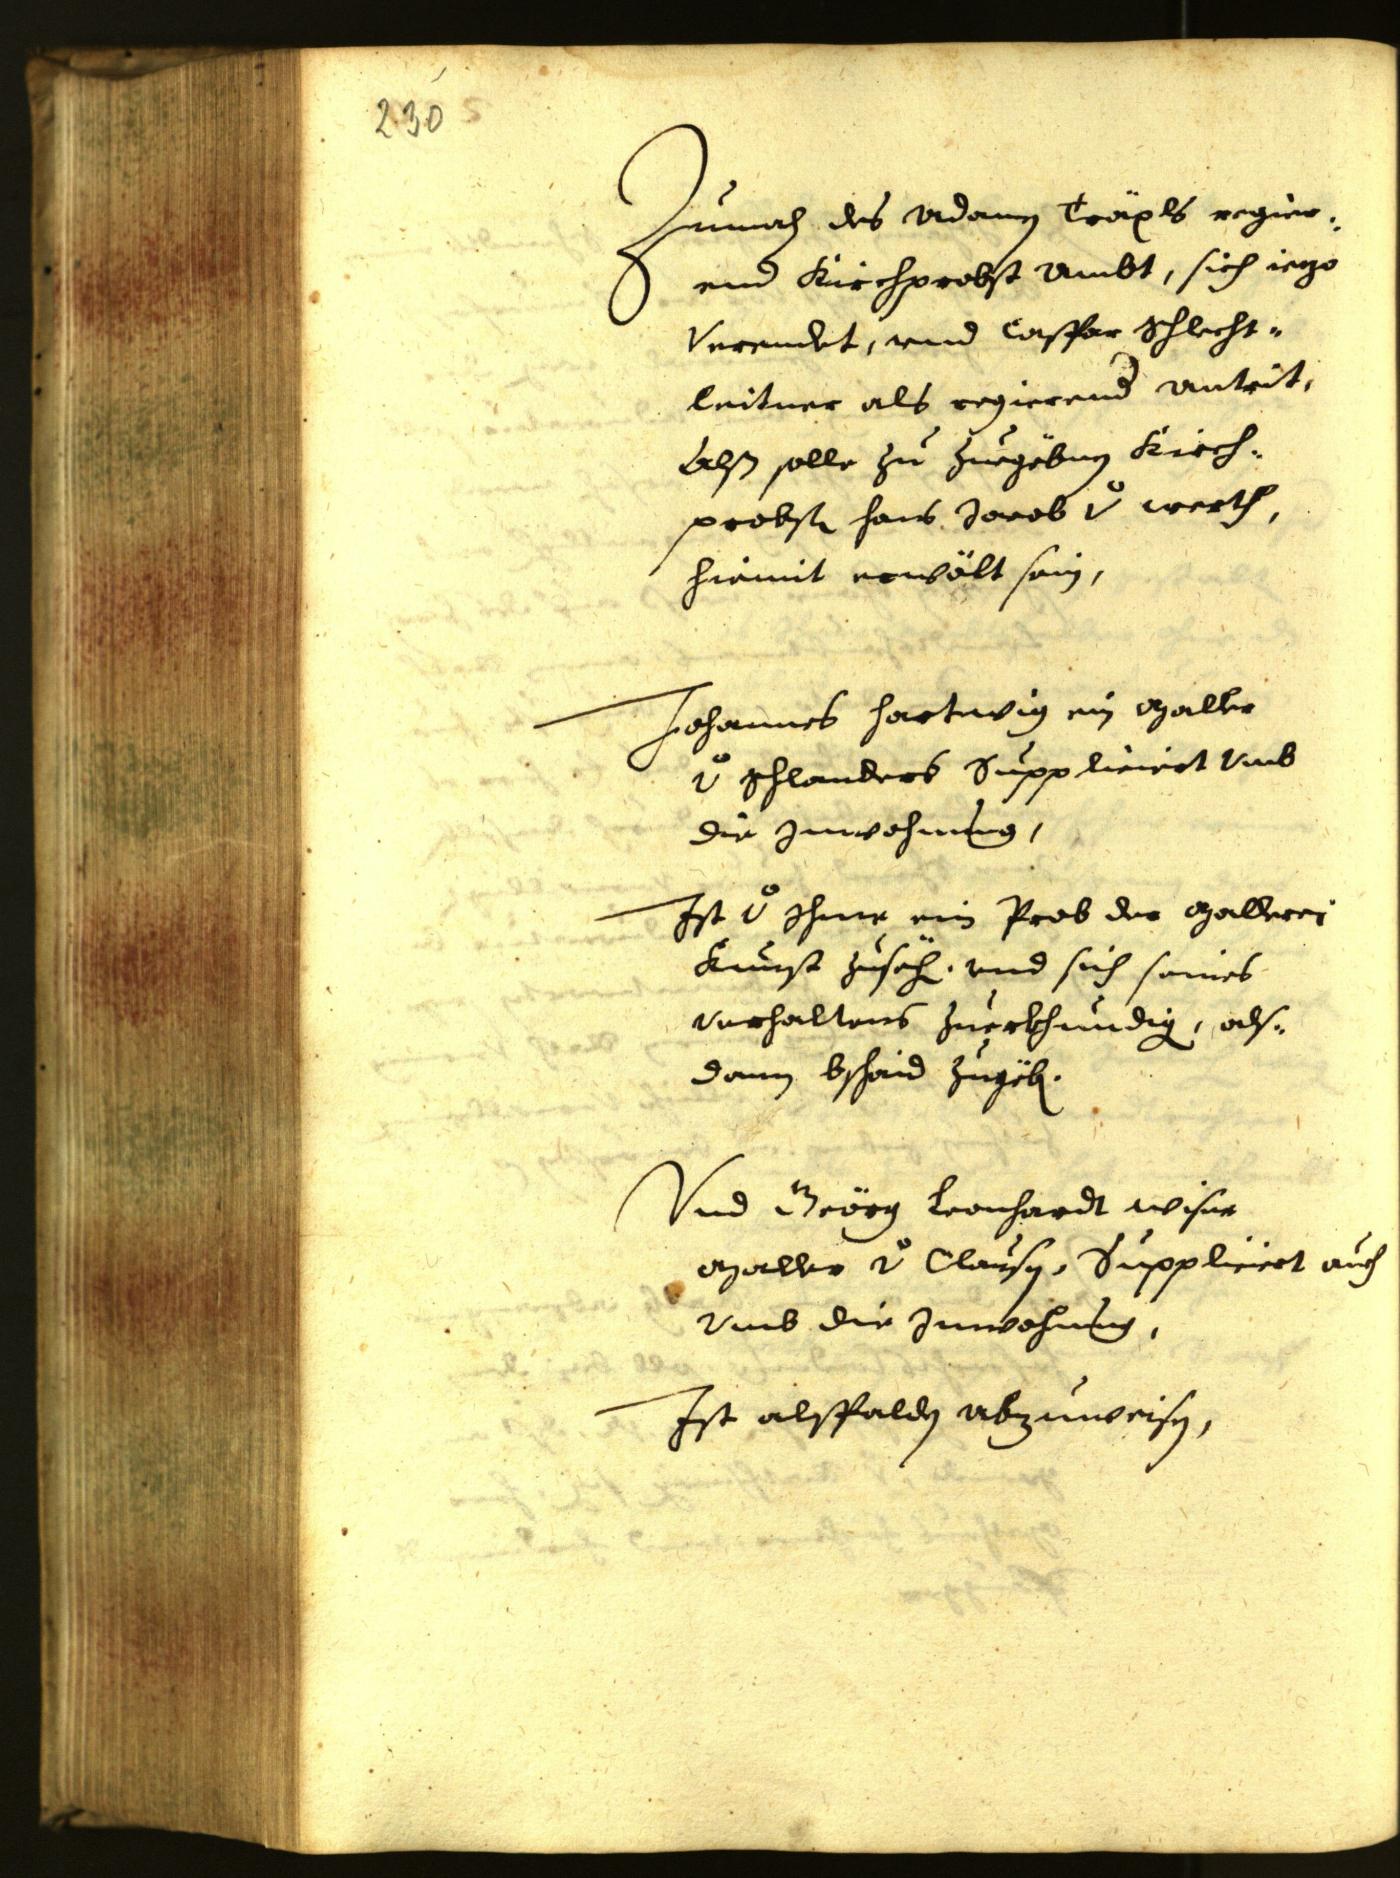 230
Zumah des Adamn Träxls regier-
end Kirchprobst Ambt, sich iezo
Verendet, vnd Casspar Schlecht-
leitner als regierend Antrit,
Alß solle zu zuegebnen Kirch-
probstn hans Jacob v werth,
hiemit erwölt sein,
Johannes hartwig ein Maller
v Schlanders Suppliciert vmb
die Inwohnung,
Ist v Ihme ein Prob der Mallerei
Kunst zusech. vnd sich seines
verhaltens zuerkhundig, als-
dann bschaid zugeb.
Vnd Geörg Leonhardt wisne
Maller v Clausn, Suppliciert auch
vmb die Inwohnung,
Ist alsspalden abzuweisn,